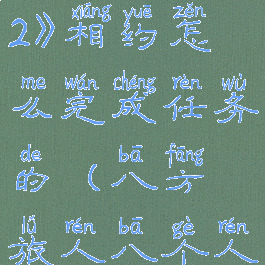 xiāng yuē zěn
2》相约怎
me wán chéng rèn wù
么完成任务
de bā fāng
的（八方
lǚ rén bā gè rén
旅人八个人